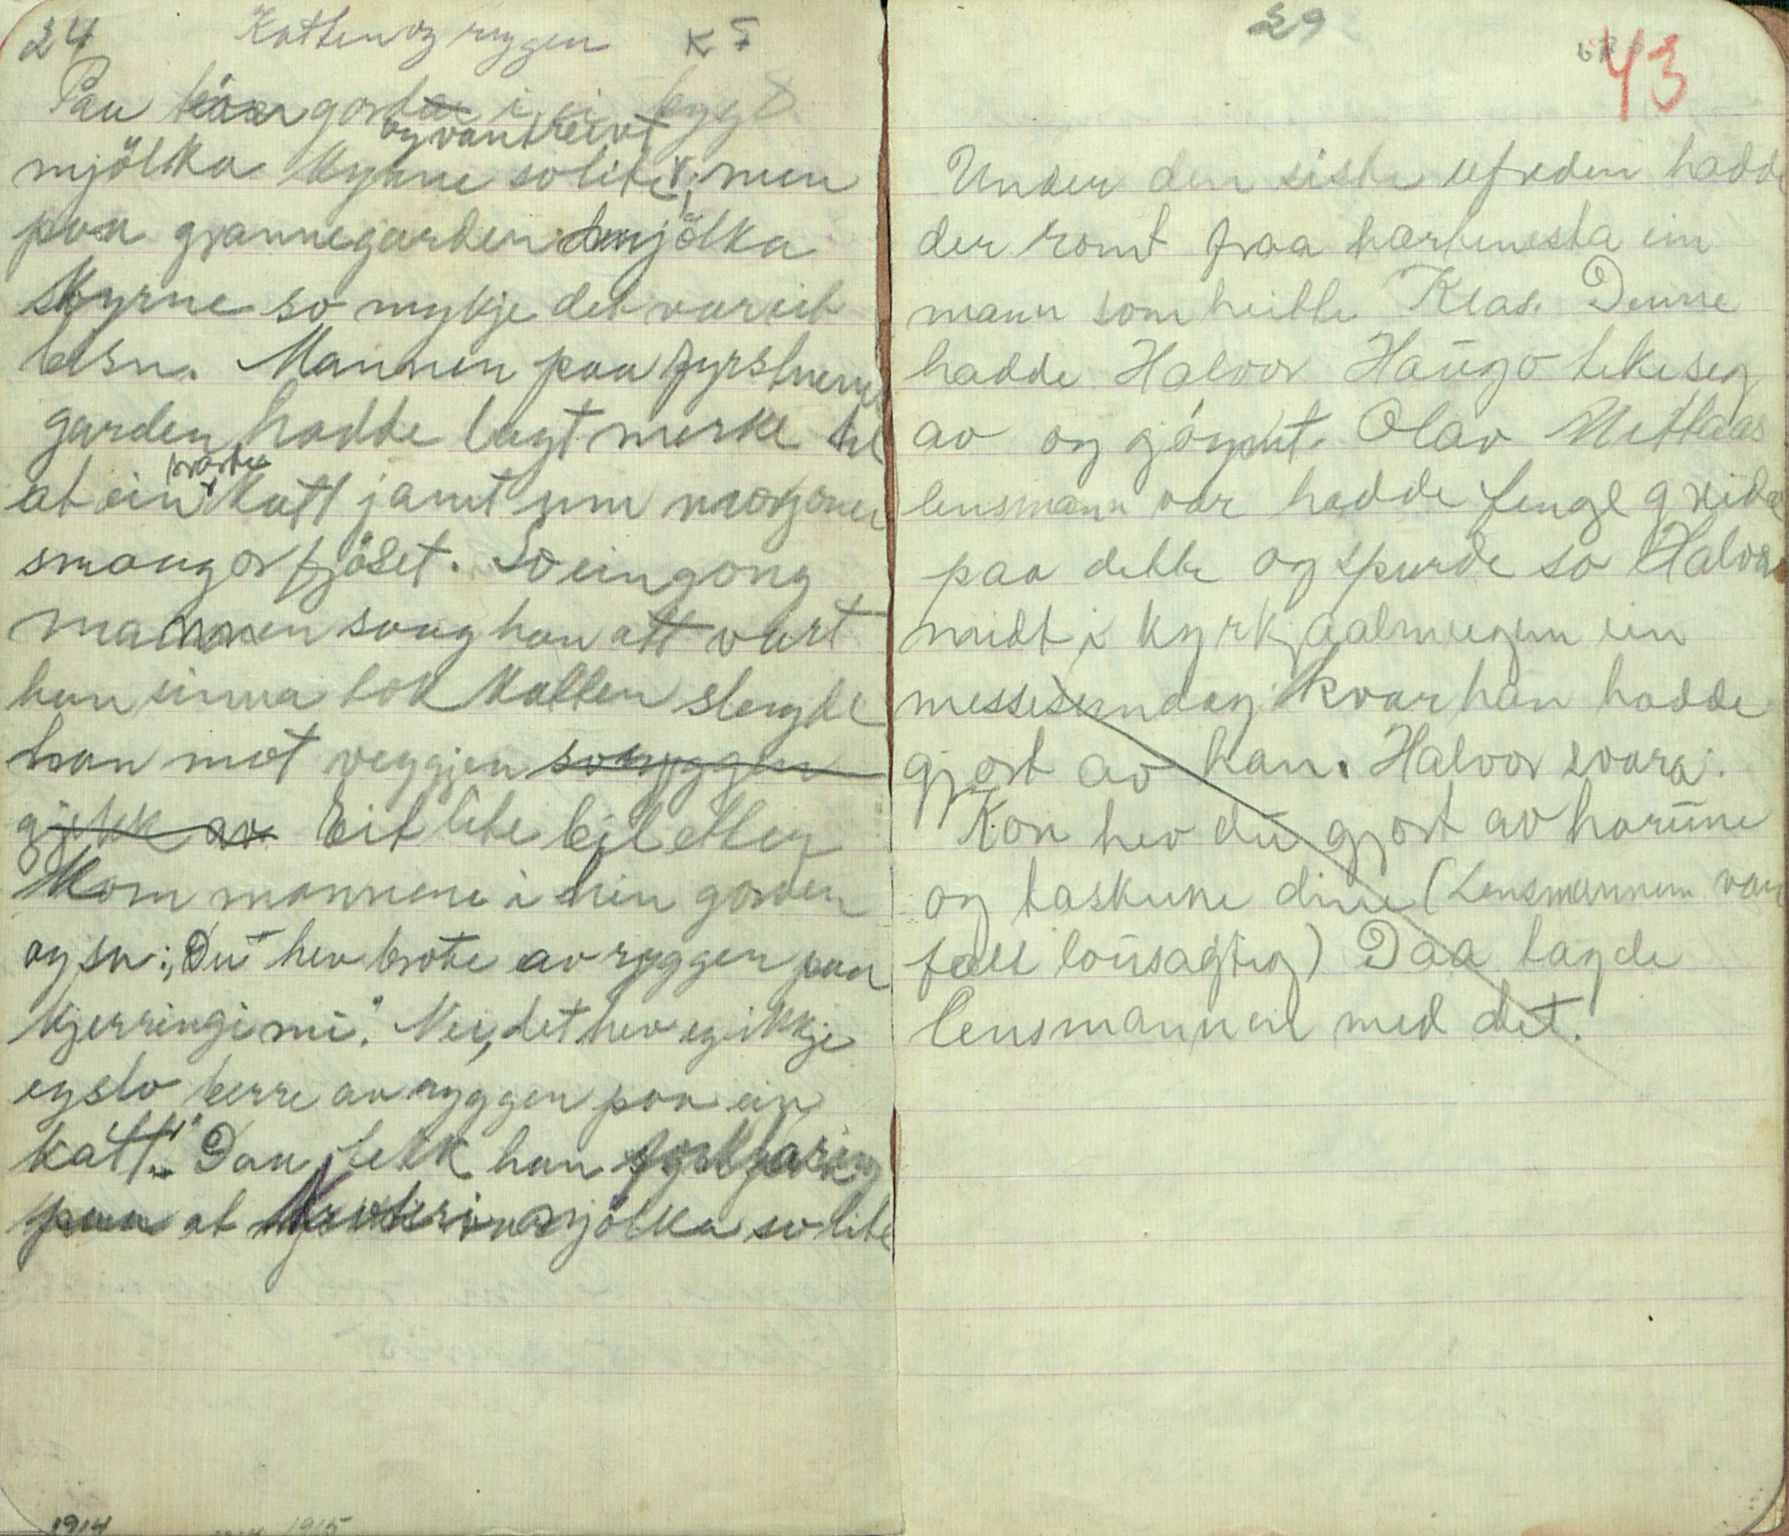 24 Katten og ryggen K F
Paa gard i ei bygd
og vantreivst
mjölka kyrne so lite, men
paa grannegarden mjölka
kyrne so mykje det var eit
Mannen paa fyrstnevnde
garden hadde lagt merke til
svarte
at ein katt jamt um morgonen
smaug or fjöset. So ein gong
mannen saag han att vart
han sinna tok katten slengde
han mot veggjen so ryggen
gjekk av Eit lite bil etter
kom mannen i hin garden
og sa: „Du hev brote av ryggen paa
kjerringi mi." Nei, det hev eg ikkje
eg slo berre av ryggen paa ein
katt." Daa fekk han forklaring
paa at mjölka so lite
1914 1915
29
43
Under den siste ufreden hadde
der romt fraa hærtenesta ein
mann som heitte Klas. Denne
hadde Halvor Haugo teke seg
av og göymt. Olav Mettaas
lensmann var hadde fengt greide
paa dette og spurde so Halvor
midt i kyrkjaalmugen ein
messesundag kvar han hadde
gjort av han. Halvor svara:
Kor hev du gjort av horune
og taskune dine (Lensmannen var
fæll lousagtig) Daa tagde
lensmannen med det.